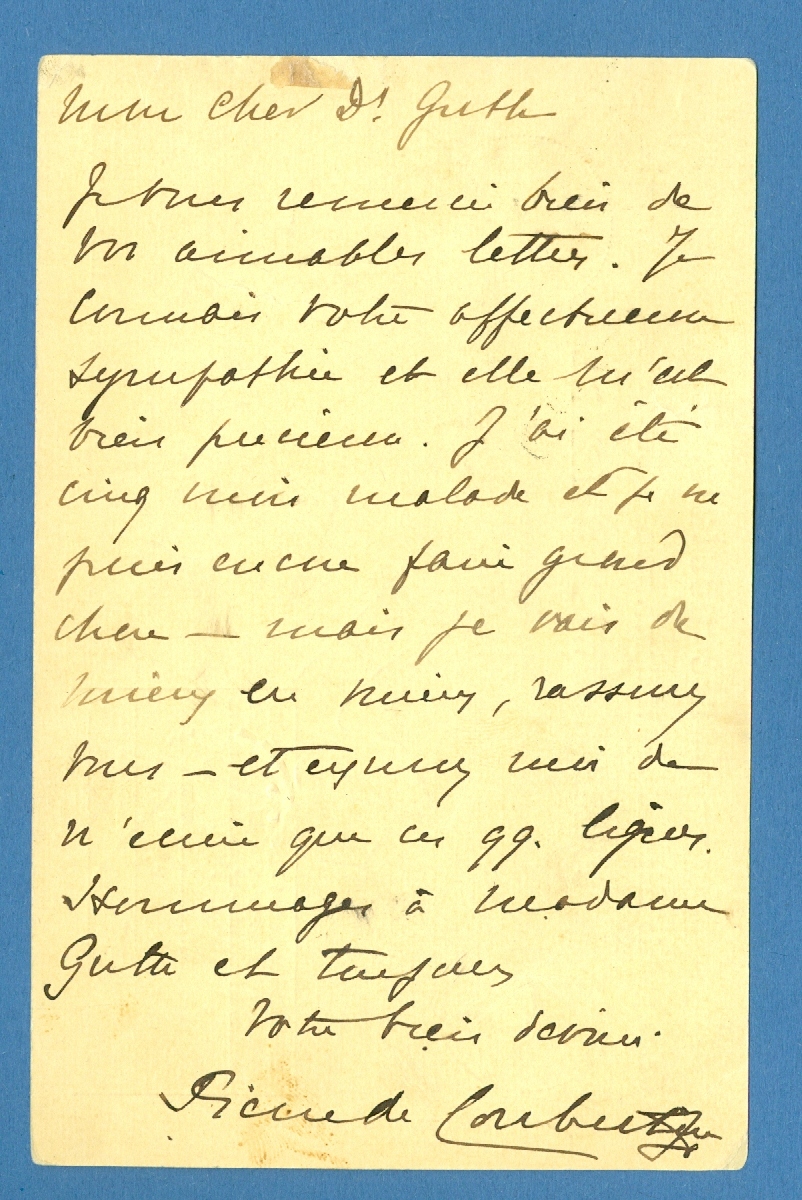 Mon cher Dr. Guth
Je vous remercie bien de
vos aimables lettres. Je
connais votre affectueuse
sympathie et elle m'est
bien précieuse. J'ai été
cinq mois malade et je ne
puis encore faire grand
chose — mais je vais de
mieux en mieux, rassurez
vous — et excusez moi de
n'écrire que ces qq. lignes.
Hommages à Madame
Guth et toujours
Votre bien dévoué.
Pierre de Coubertin